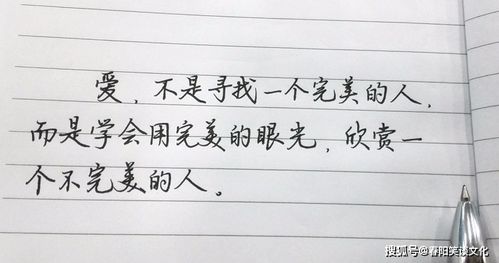 爱，不是寻找一个完美的人，
而是学会用完美的眼光，欣赏一
个不完美的人。
搜狐号@春阳笑谈文化